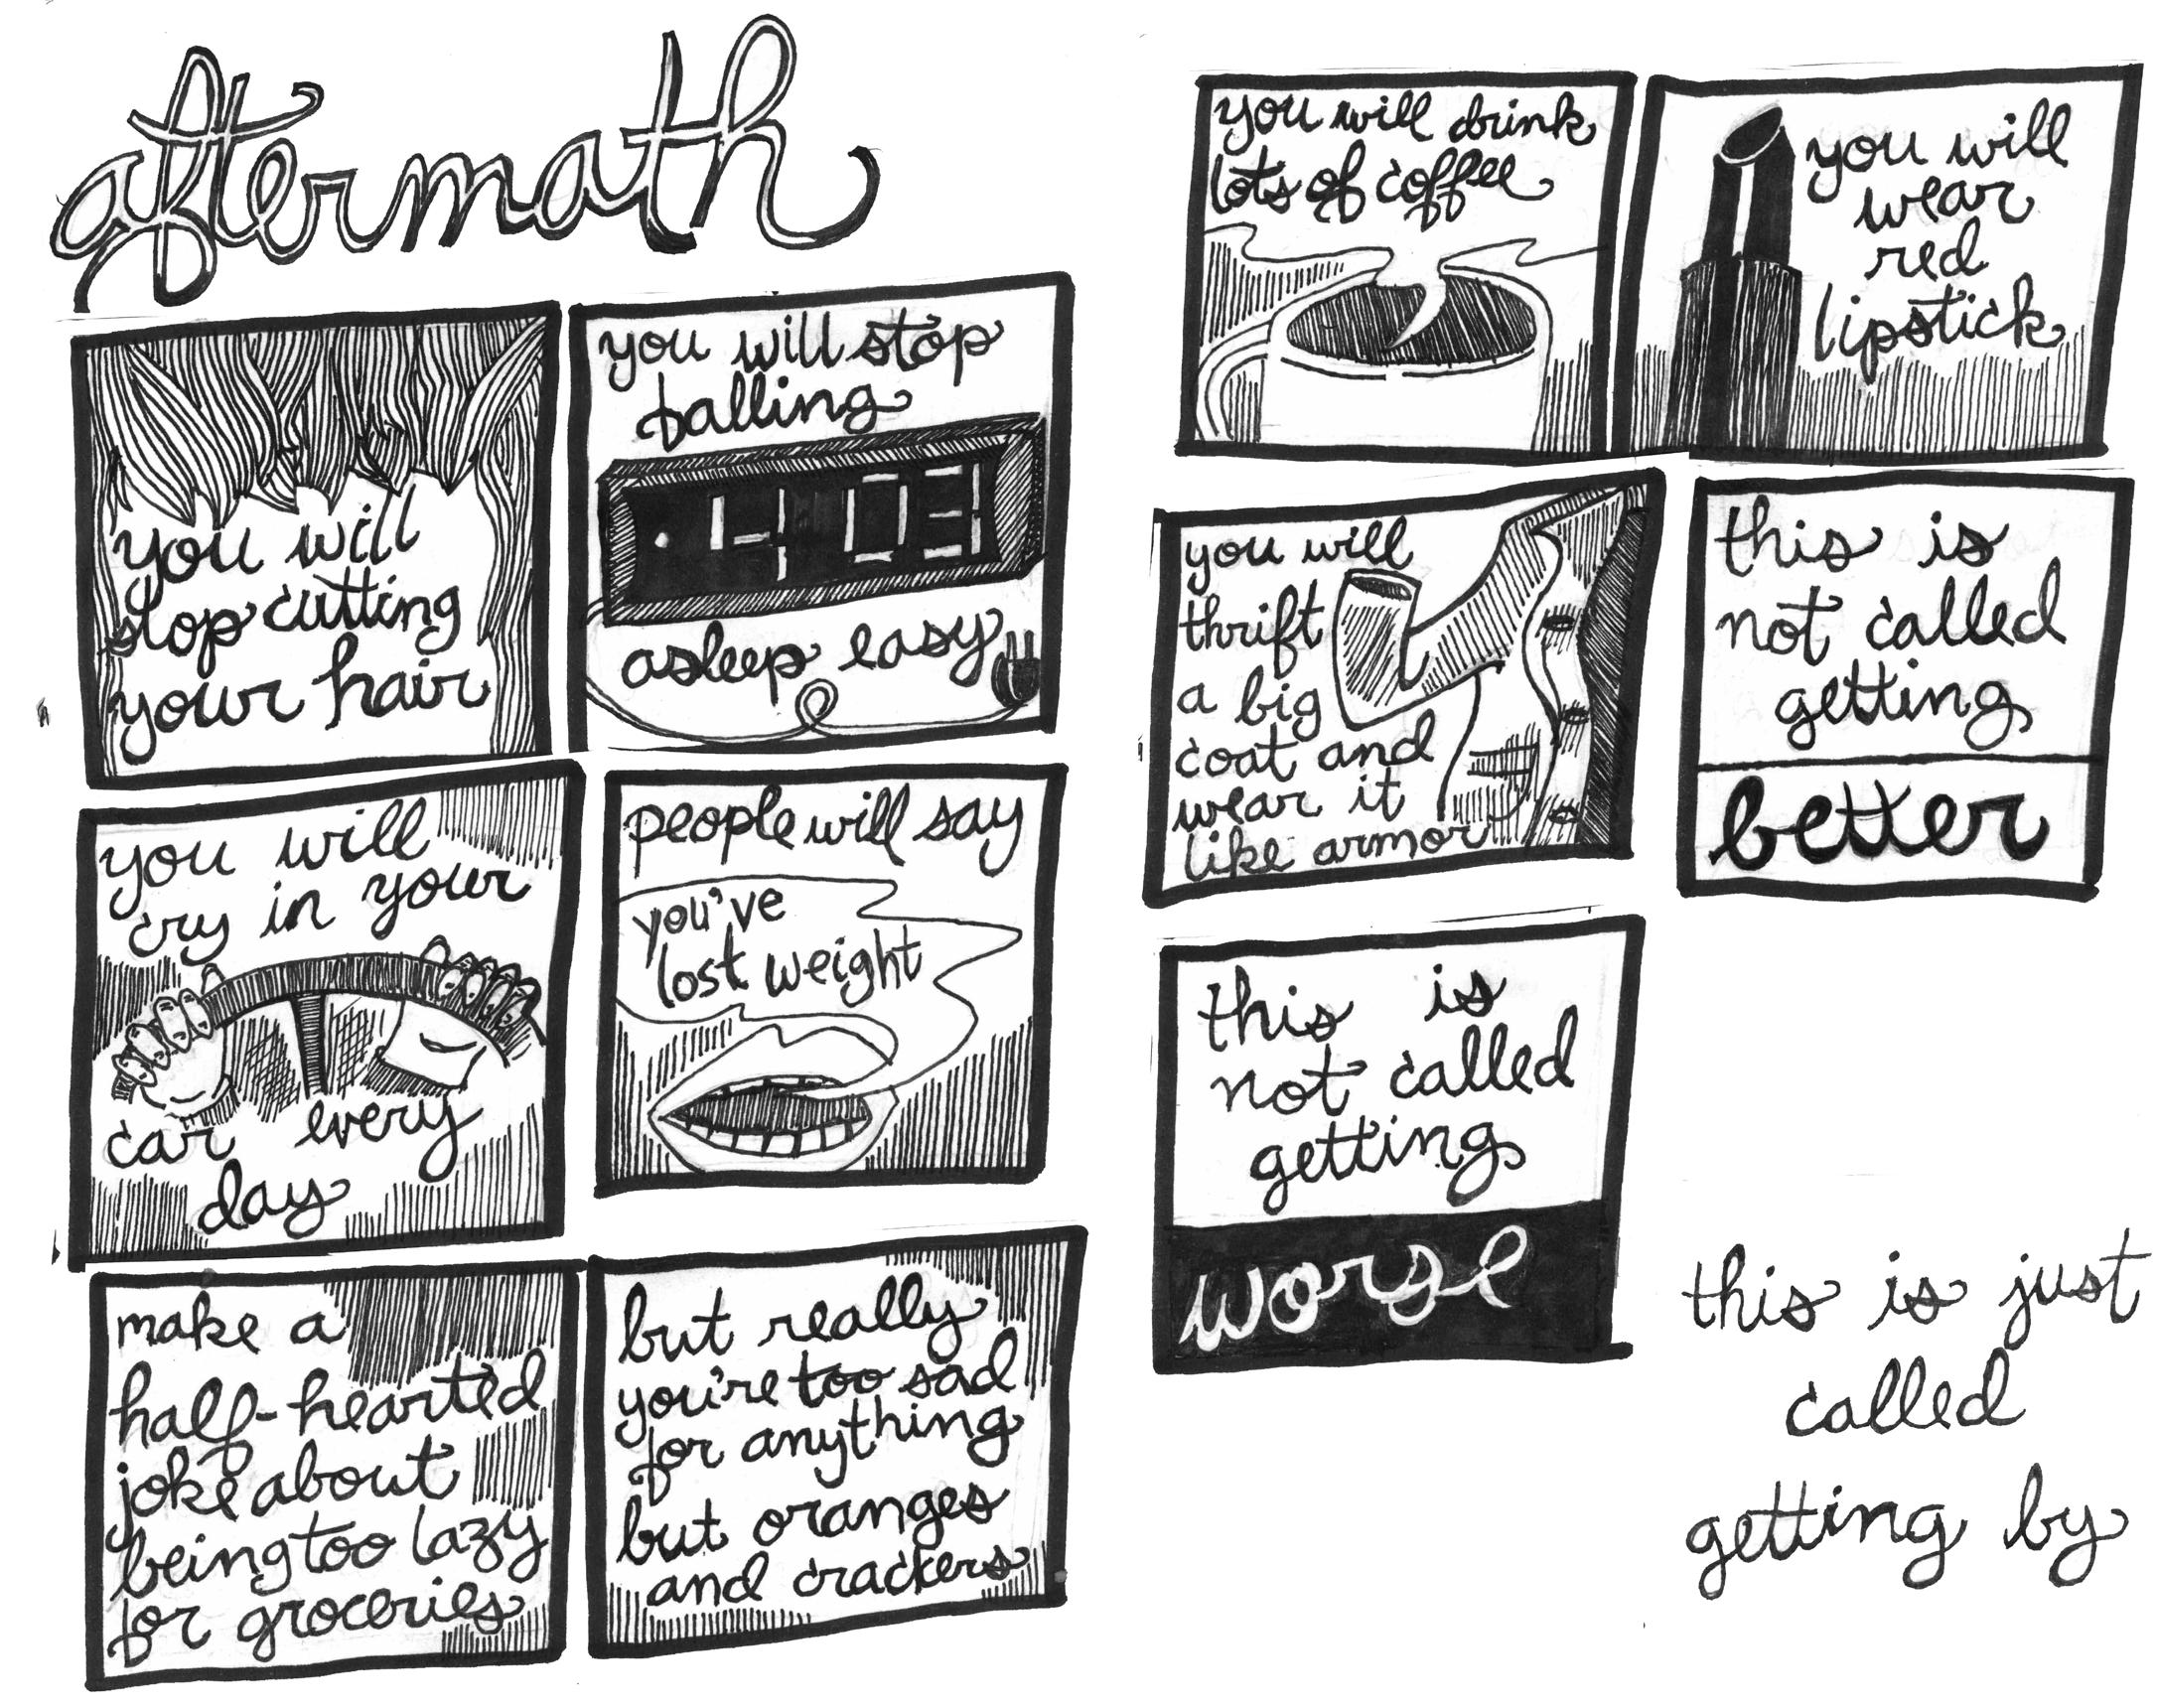 aftermath
you will
stop cutting
your hair
you will stop
falling
4:03
asleep easy
you will
cry in your
car every
day
people will say
you've
lost weight
make a
half-hearted
joke about
being too lazy
for groceries
but really
you're too sad
for anything
but oranges
and crackers
you will drink
lots of coffee
you will
wear
red
lipstick
you will
thrift
a big
coat and
wear it
like armor
this is
not called
getting
better
this is
not called
getting
worse
this is just
called
getting by